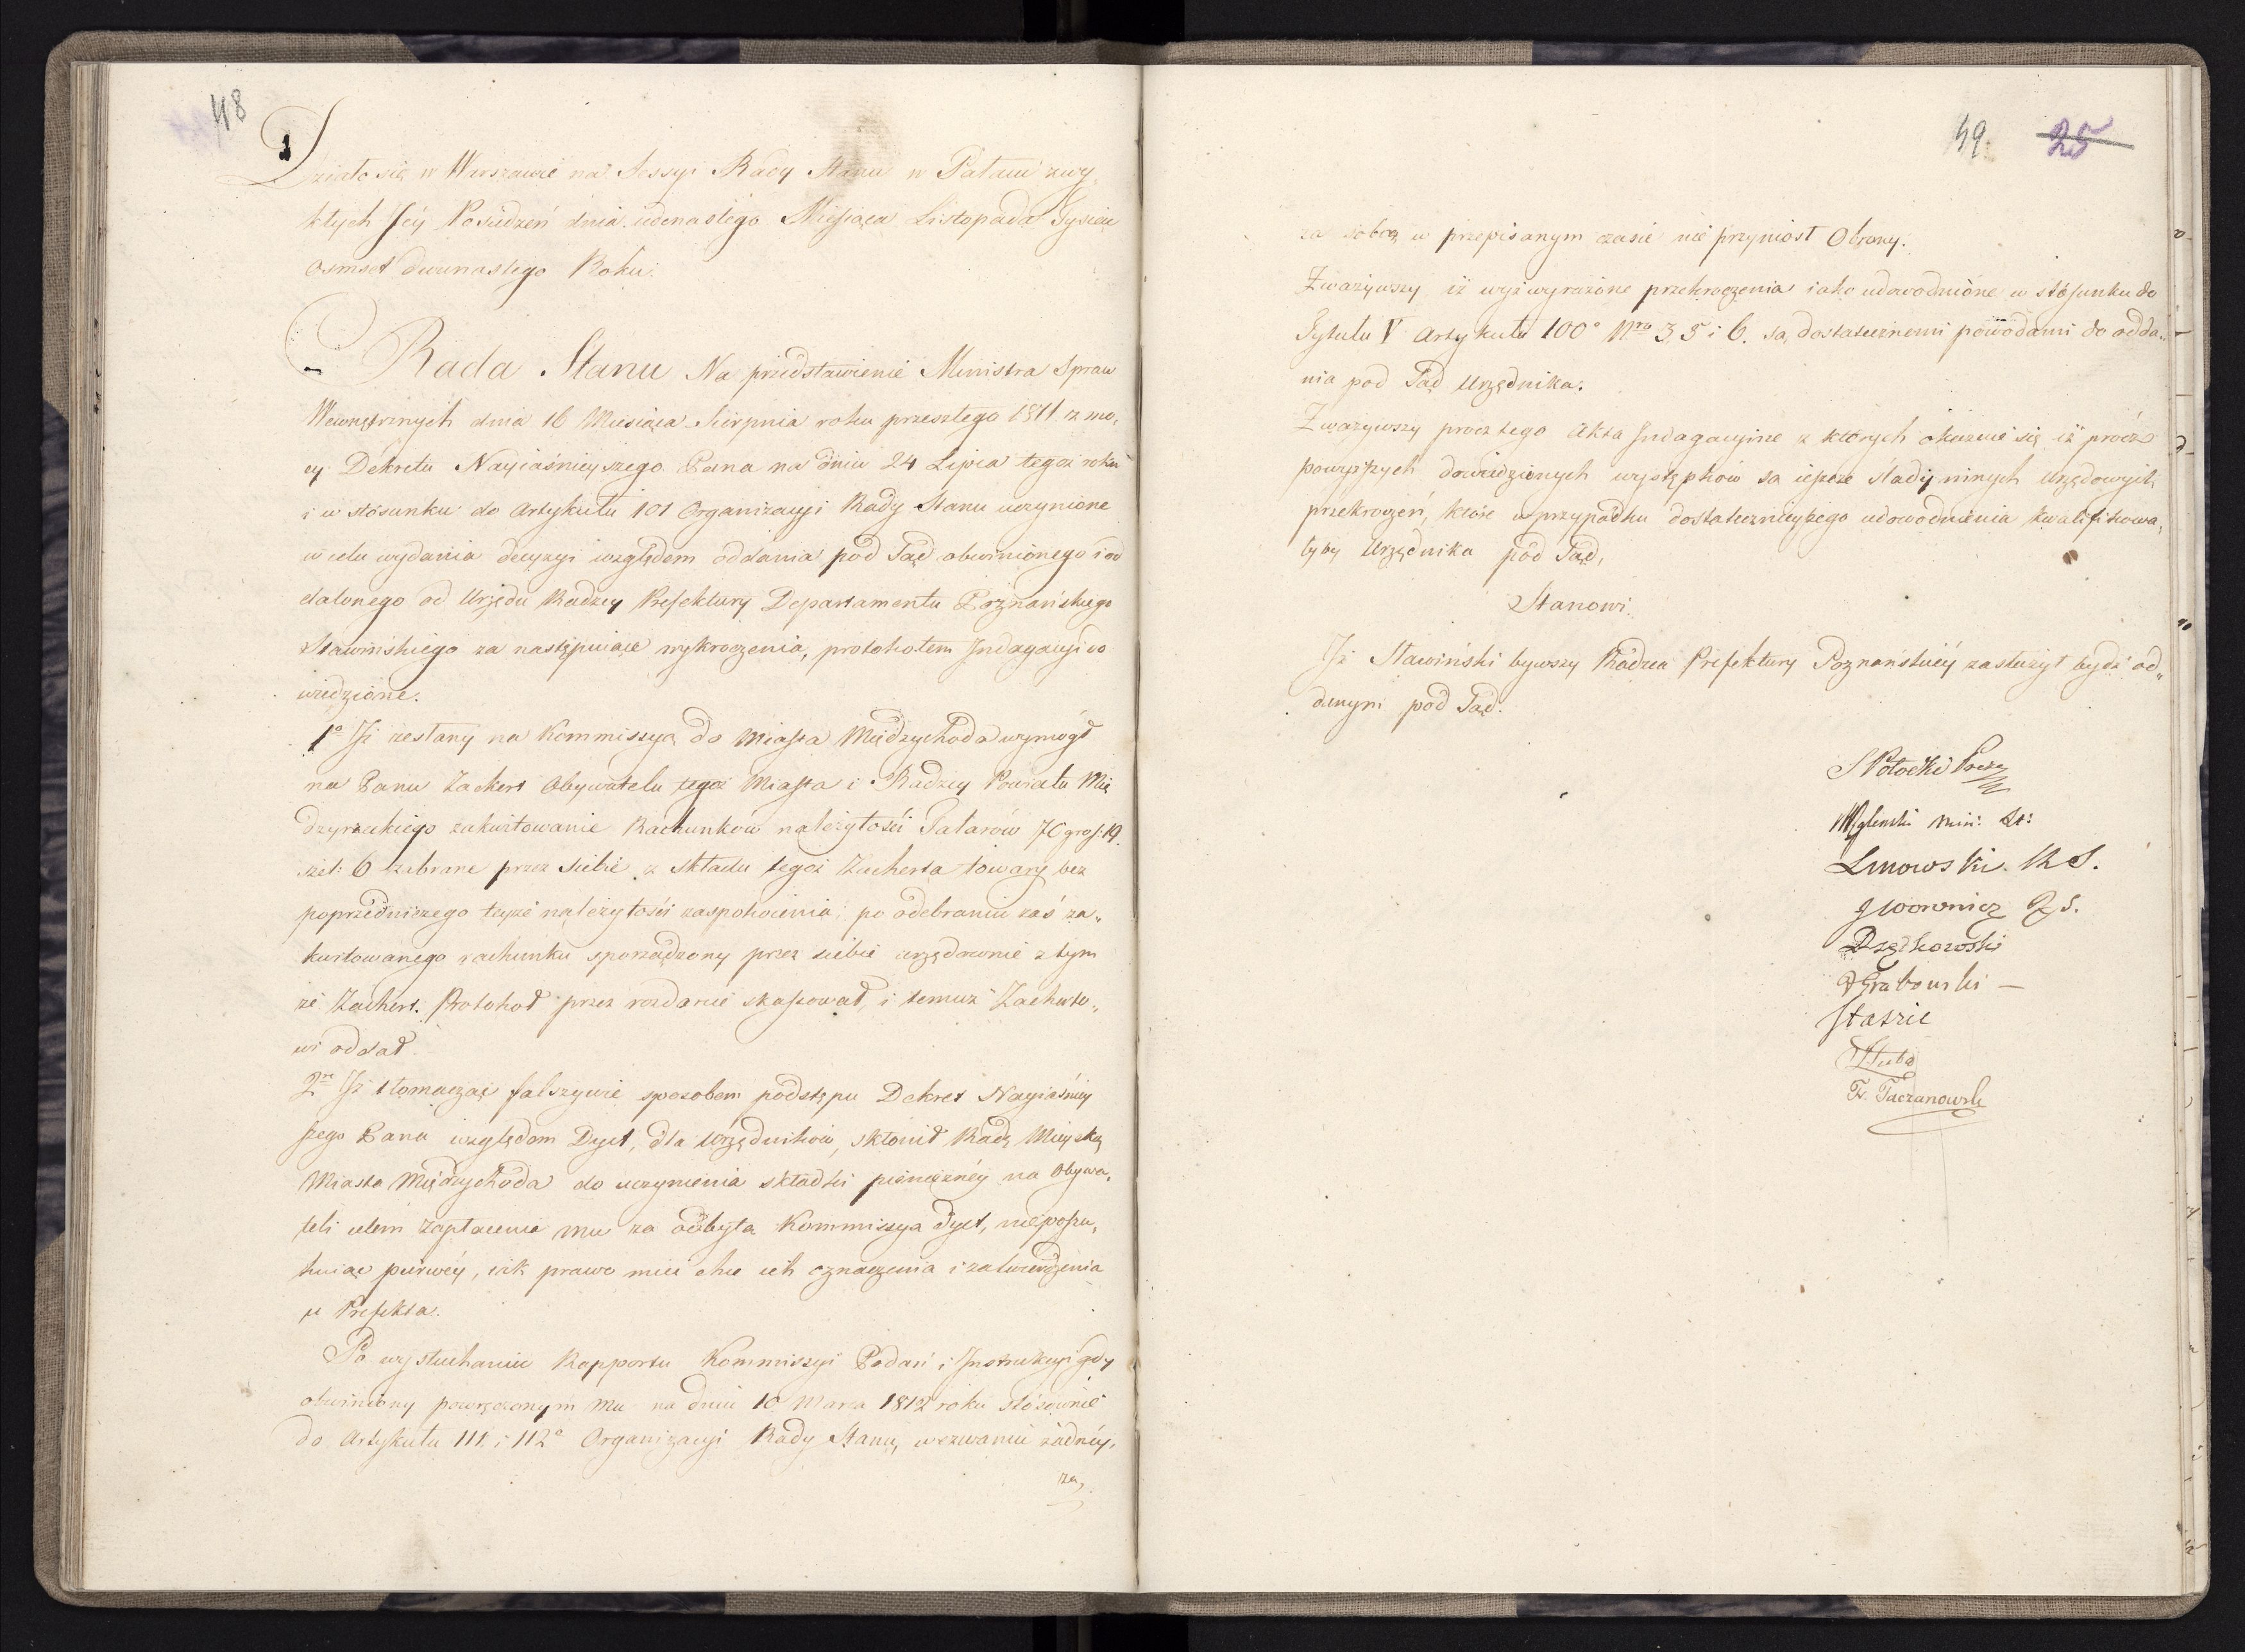 48
Działo się w Warszawie na Sessyi Rady Stanu w Pałacu zwy,
kłych Jey Posiedzeń dnia iedenastego Miesiąca Listopada Tysiąc
osmset dwunastego Roku.
Rada Stanu Na przedstawienie Ministra Spraw
Wewnętrznych dnia 16 Miesiąca Sierpnia roku przeszłego 1811 z mo,
cy Dekretu Nayiaśnieyszego Pana na dniu 24 Lipca tegoż roku
i w stósunku do Artykułu 101 Organizacyi Rady Stanu uczynione
w celu wydania decyzyi względem oddania pod Sąd obwinionego i od
dalonego od Urzędu Radzcy Prefektury Departamentu Poznańskiego
Sławińskiego za następuiące wykroczenia, protokołem Indagacyi do
wiedzione.
1º Iż zesłany na Kommissyą do Miasta Międzychoda wymógł
na Panu Zachert Obywatelu tegoż Miasta i Radzcy Powiatu Mię
dzyrzeckiego zakwitowanie Rachunków należytości Talarów 70 gros: 19.
szel: 6 zabrane przez siebie z składu tegoż Zacherta towary bez
poprzedniczego teyże należytości zaspokoienia, po odebraniu zaś za„
kwitowanego rachunku sporządzony przez siebie urzędownie z tym
że Zachert. Protokoł przez rozdarcie skassował, i temuż Zacherto„
wi oddał.
2º Iż tłomacząc fałszywie sposobem podstępu Dekret Nayiaśniey
szego Pana względem Dyet, dla Urzędników, skłonił Radę Mieyską
Miasta Międzychoda do uczynienia składki pieniężnéy na Obywa,
teli celem zapłacenia mu za odbytą Kommissyą dyet, nieposzu,
kuiąc pierwéy, iak prawo mieć chce ich oznaczenia i zatwierdzenia
u Prefekta.
Po wysłuchaniu Rapportu Kommissyi Podań i Instrukcyi gdy
obwiniony powręczonym mu na dniu 10 Marca 1812 roku stósownie
do Artykułu 111 i 112º Organizacyi Rady Stanu, wezwaniu żadnéy,
za,
49. 25
za sobą w przepisanym czasie nie przyniosł Obrony.
Zważywszy iż wyż wyrażone przekroczenia iako udowodnione w stósunku do
Tytułu V Artykułu 100º Nro 3, 5 i 6. są dostatecznemi powodami do odda„
nia pod Sąd Urzędnika.
Zważywszy procz tego Akta Indagacyine z których okazuie się iż procz
powyższych dowiedzionych występków są ieszcze ślady innych Urzędowych
przekroczeń, które w przypadku dostatecznieyszego udowodnienia kwalifikowa,
łyby Urzędnika pod Sąd,
Stanowi
Iż Sławiński bywszy Radzca Prefektury Poznańskiéy zasłużył bydź od„
danym pod Sąd.
S Potocki Prezes
Węgleński Min: St:
Linowski R S.
Woronicz R S.
Dzękoński
Grabowski —
Staszic
F. Taczanowski